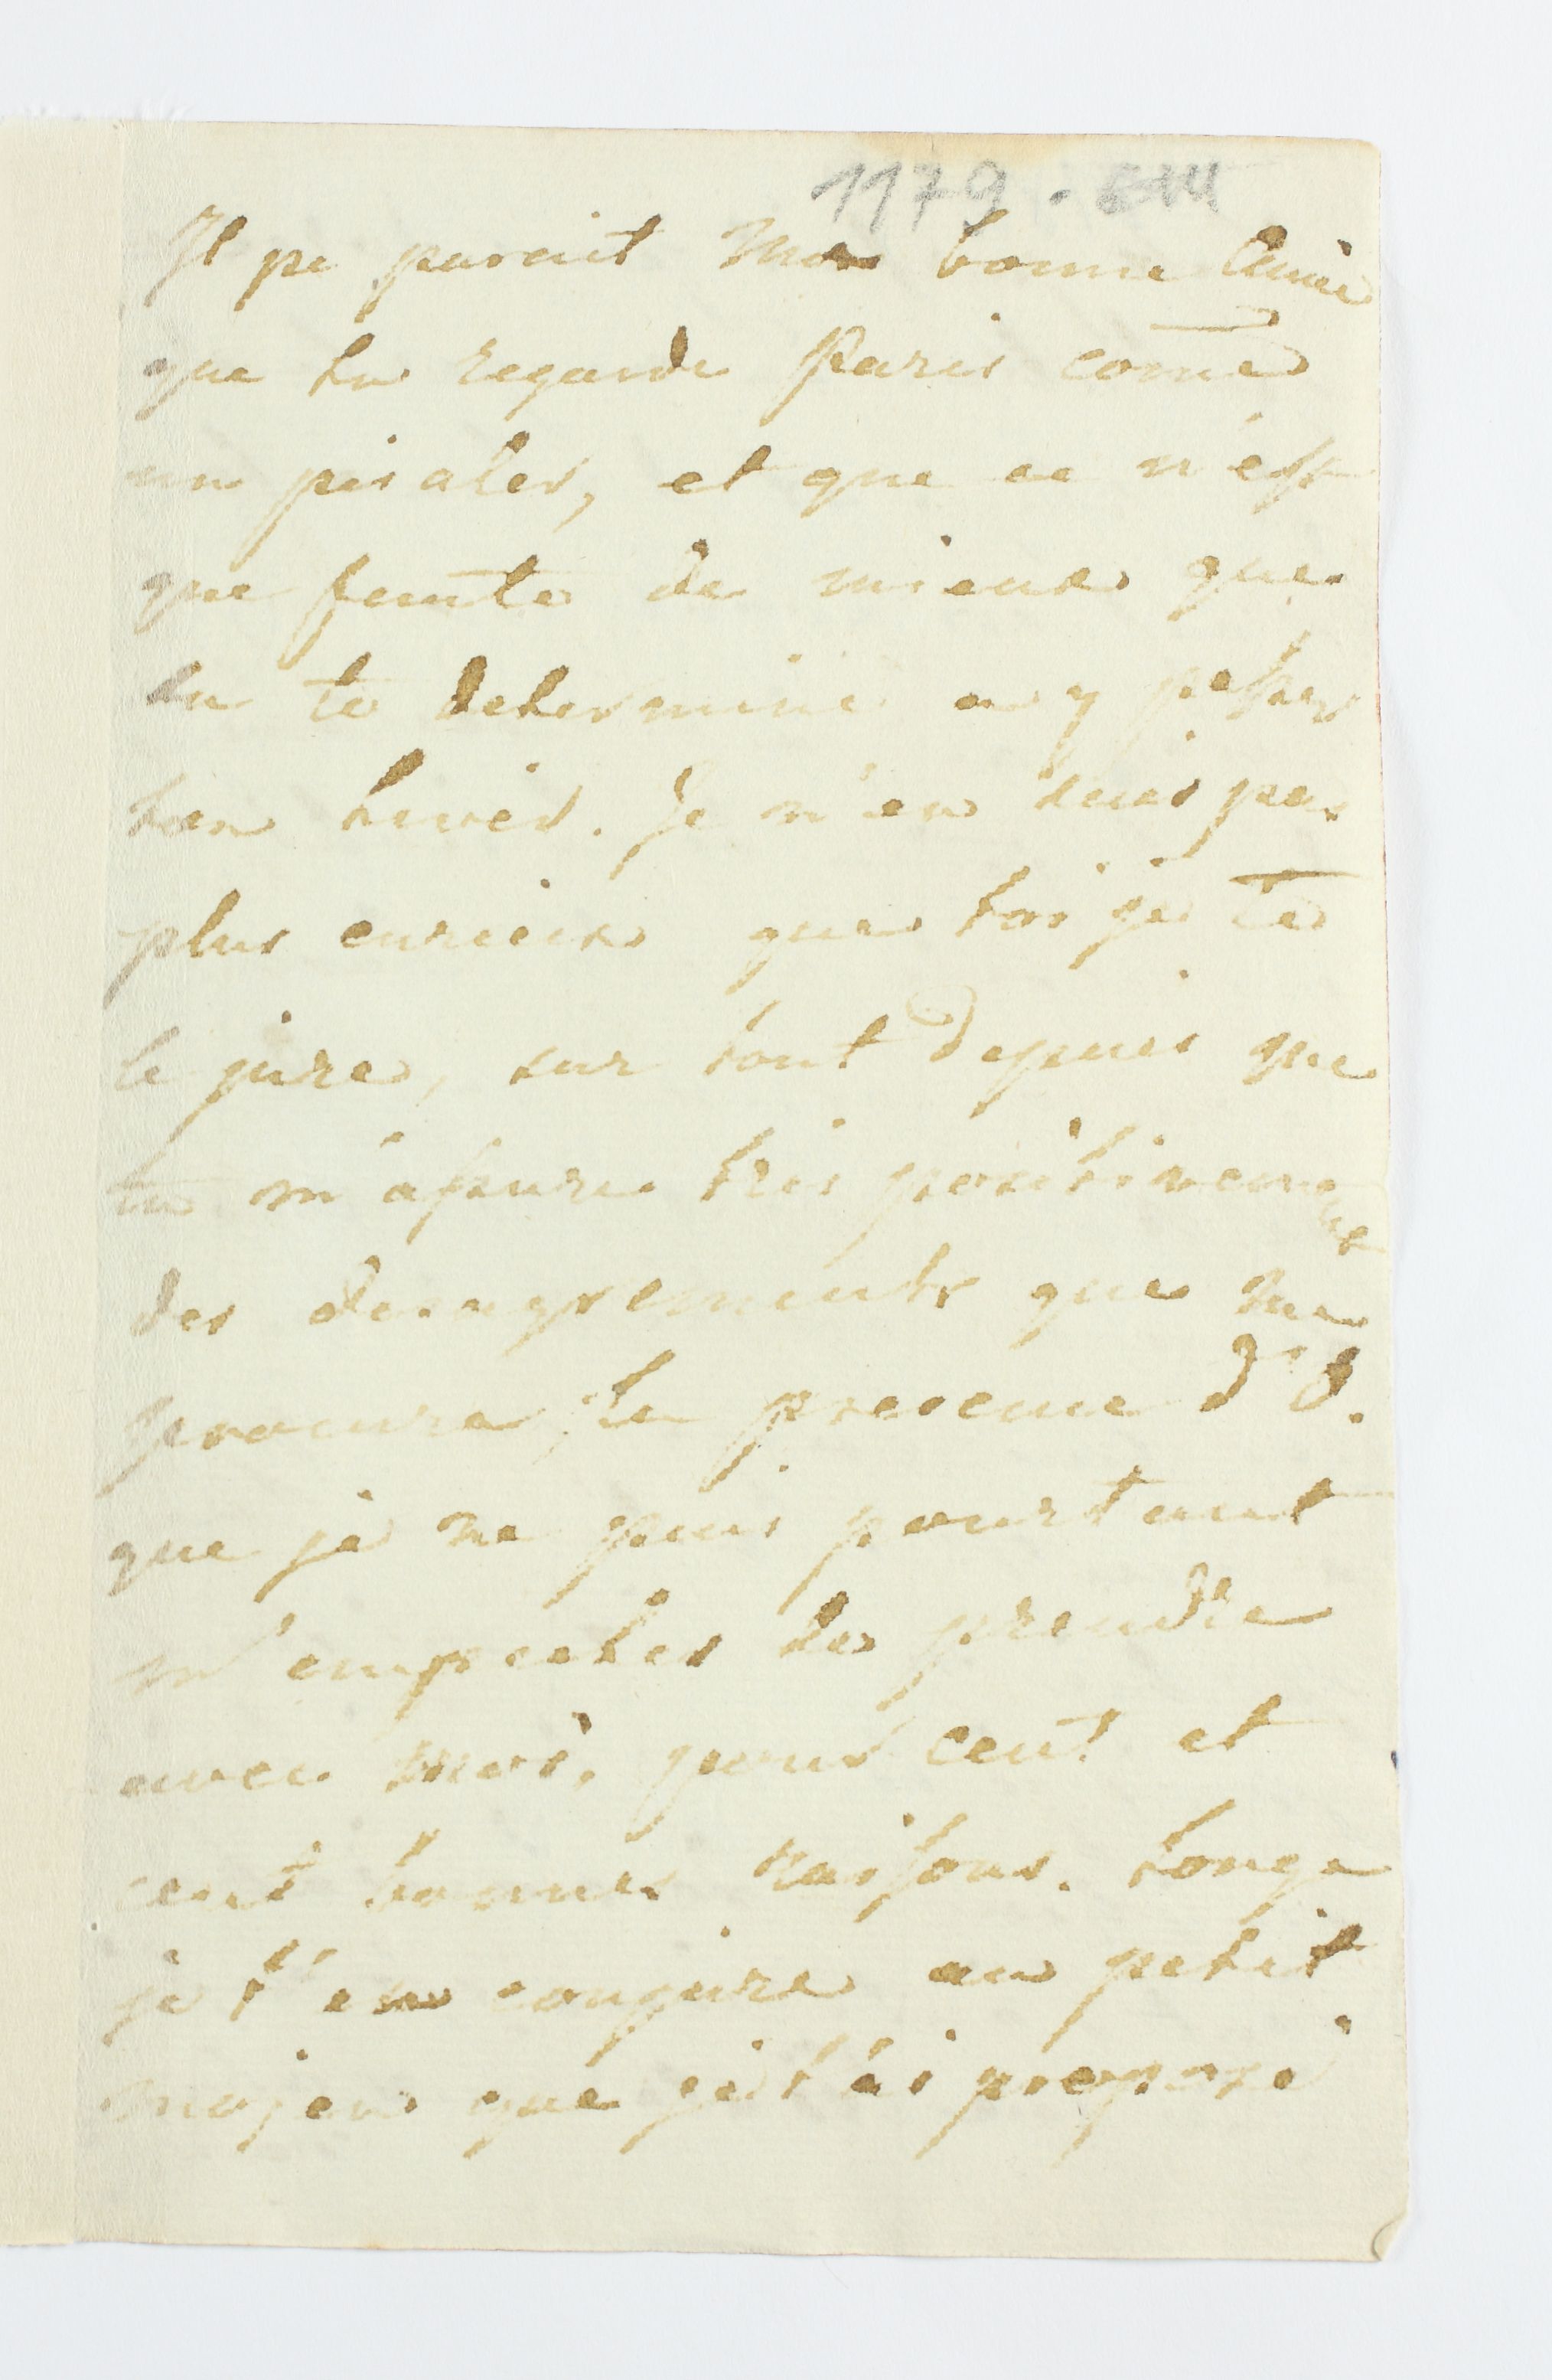 1179.
Il pe parait Mon bonne Amie
que tu regarde Paris come
un pis aler, et que ce n'est
que faute de mieux que
tu te determine a y passer
ton hiver. Je n'en suis pas
plus curieux que toi je te
le jure, sur tout depuis que
tu m'assure tres positivement
des desagrements que me
procure la presence d'
que je ne puis pourtant
m'empecher de prendre
avec moi, pour cent et
cent bonnes raisons. Songe
je t'en conjure au petit
moyen que je t'ai proposé